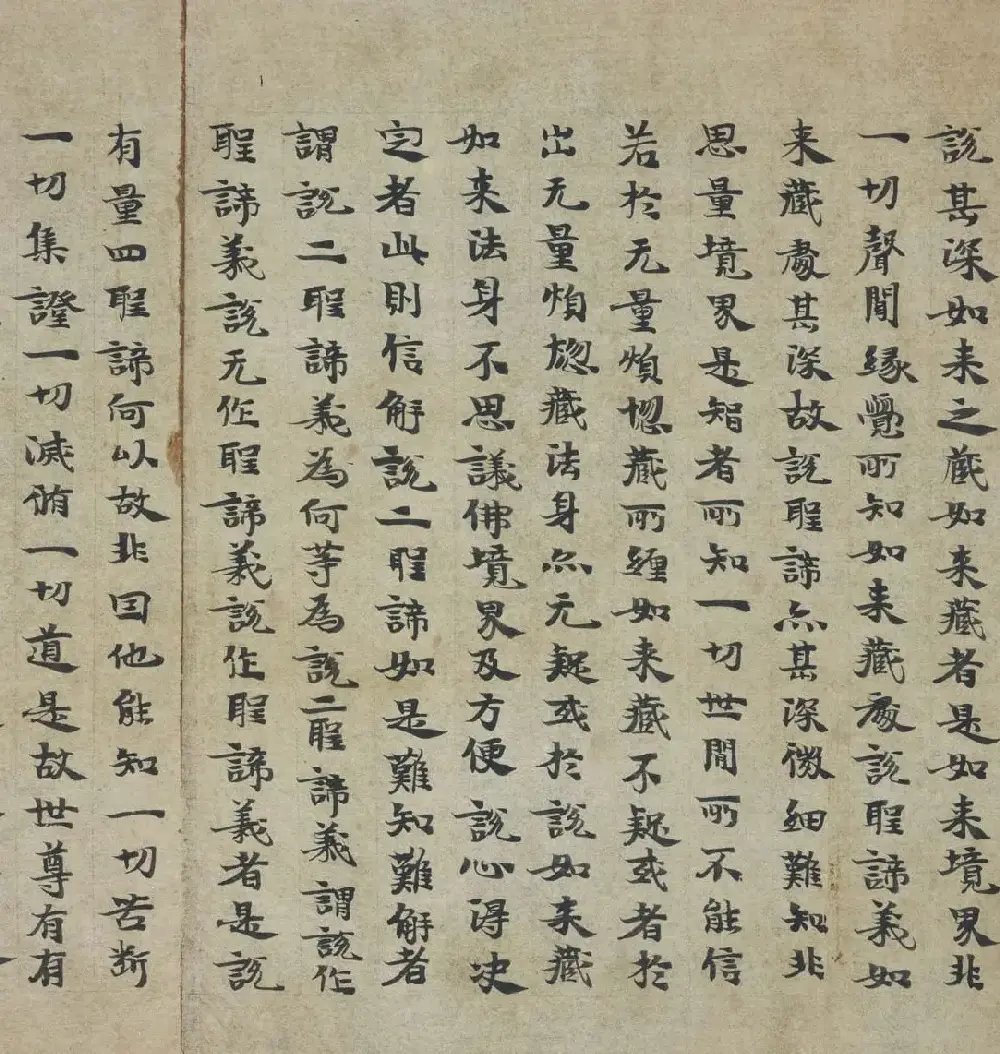 説甚深如来之蔵如来藏者是如来境界非
一切聲聞緣覺所知如来藏處説聖諦義如
来藏處甚深故説聖諦亦甚深微細難知非
思量境界是智者所知一切世間所不能信
若於无量煩惚藏所纏如来藏不疑或者於
出无量煩惚藏法身亦无疑或於説如来藏
如来法身不思議佛境界及方便説心得决
定者此則信解説二聖諦如是難知難解者
謂説二聖諦義為何等為説二聖諦義謂説作
聖諦義説无作聖諦義説作聖諦義者是説
有量四聖諦何以故非因他能知一切苦断
一切集證一切滅脩一切道是故世尊有有